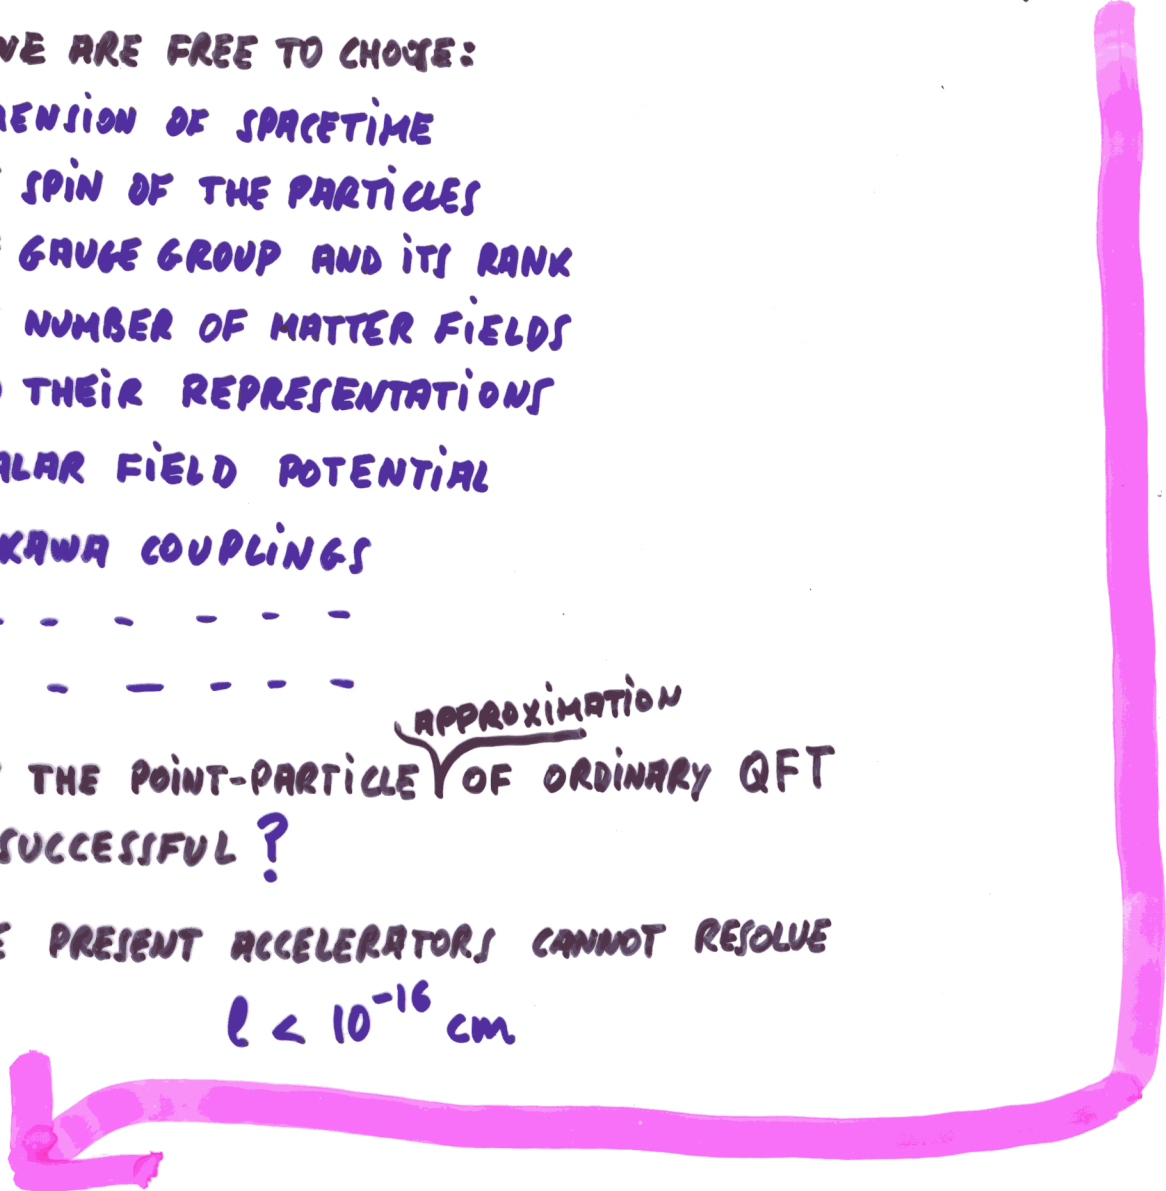 WE ARE FREE TO CHOOSE:
ENSION OF SPACETIME
SPIN OF THE PARTICLES
GAUGE GROUP AND ITS RANK
NUMBER OF MATTER FIELDS
THEIR REPRESENTATIONS
ALAR FIELD POTENTIAL
KAWA COUPLINGS
- - - - - -
- - - - -
APPROXIMATION
THE POINT-PARTICLE OF ORDINARY QFT
SUCCESSFUL ?
E PRESENT ACCELERATORS CANNOT RESOLVE
l < 10⁻¹⁶ cm